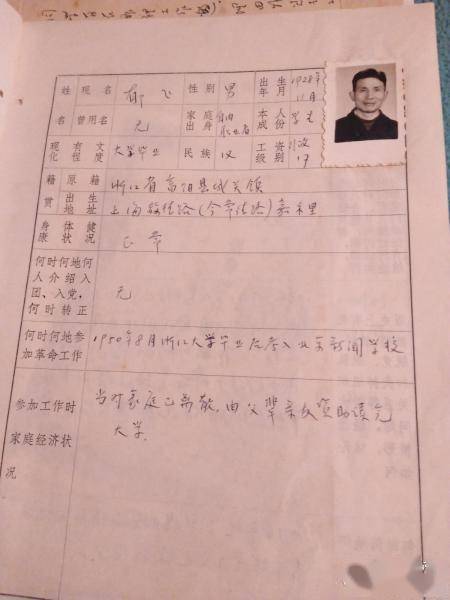 姓 现名 郁飞 性别 男 出生年月 1928年11月
名 曾用名 无 家庭出身 自由职业者 本人成份 学生
现有文化程度 大学毕业 民族 汉 工资级别 行政17
籍贯 原籍 浙江省富阳县城关镇
出生地址 上海 路(今常德路)嘉禾里
身体健康状况 正常
何时何地何人介绍入团、入党,何时转正 无
何时何地参加革命工作 1950年8月浙江大学毕业后考入北京新闻学校
参加工作时家庭经济状况 当时家庭已离散,由父辈亲友资助读完
大学.